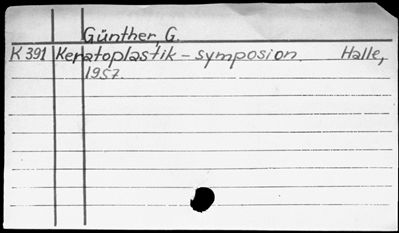 Günther, G.
K 391 Keratoplastik – symposion. Halle,
1957.